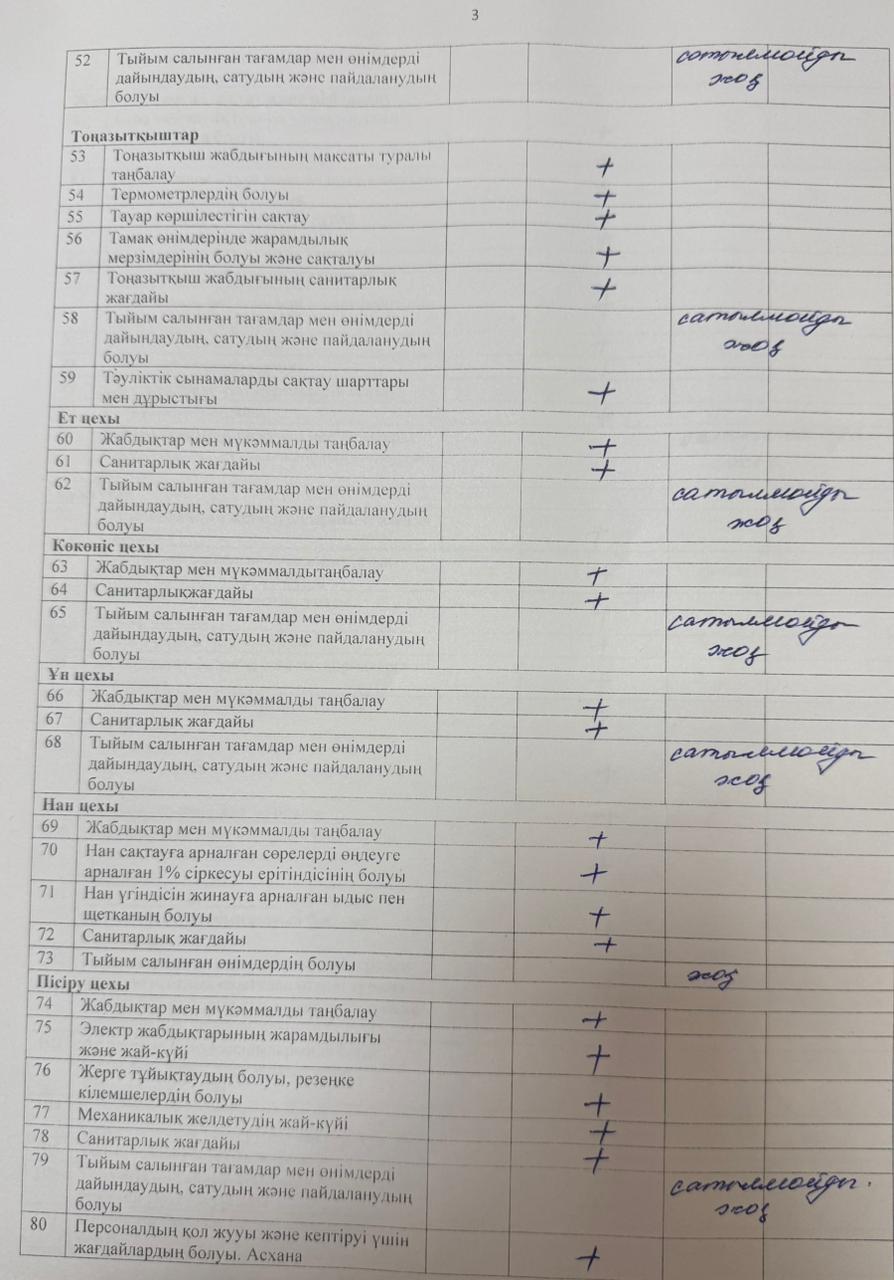 3
52 Тыйым салынған тағамдар мен өнімдерді сатылмойды
дайындаудың, сатудың және пайдаланудың жоқ
болуы
Тоңазытқыштар
53 Тоңазытқыш жабдығының мақсаты туралы
таңбалау +
54 Термометрлердің болуы +
55 Тауар көршілестігін сақтау +
56 Тамақ өнімдерінде жарамдылық
мерзімдерінің болуы және сақталуы +
57 Тоңазытқыш жабдығының санитарлық +
жағдайы
58 Тыйым салынған тағамдар мен өнімдерді сатылмойды
дайындаудың, сатудың және пайдаланудың жоқ
болуы
59 Тәуліктік сынамаларды сақтау шарттары
мен дұрыстығы +
Ет цехы
60 Жабдықтар мен мүкәммалды таңбалау +
61 Санитарлық жағдайы +
62 Тыйым салынған тағамдар мен өнімдерді сатылмойды
дайындаудың, сатудың және пайдаланудың жоқ
болуы
Көкөніс цехы
63 Жабдықтар мен мүкәммалдытаңбалау +
64 Санитарлықжағдайы +
65 Тыйым салынған тағамдар мен өнімдерді сатылмойды
дайындаудың, сатудың және пайдаланудың жоқ
болуы
Ұн цехы
66 Жабдықтар мен мүкәммалды таңбалау +
67 Санитарлық жағдайы +
68 Тыйым салынған тағамдар мен өнімдерді сатылмойды
дайындаудың, сатудың және пайдаланудың жоқ
болуы
Нан цехы
69 Жабдықтар мен мүкәммалды таңбалау +
70 Нан сақтауға арналған сөрелерді өңдеуге
арналған 1% сіркесуы ерітіндісінің болуы +
71 Нан үгіндісін жинауға арналған ыдыс пен
щетканың болуы +
72 Санитарлық жағдайы +
73 Тыйым салынған өнімдердің болуы жоқ
Пісіру цехы
74 Жабдықтар мен мүкәммалды таңбалау +
75 Электр жабдықтарының жарамдылығы
және жай-күйі +
76 Жерге тұйықтаудың болуы, резеңке
кілемшелердің болуы +
77 Механикалық желдетудің жай-күйі +
78 Санитарлық жағдайы +
79 Тыйым салынған тағамдар мен өнімдерді сатылмойды.
дайындаудың, сатудың және пайдаланудың жоқ
болуы
80 Персоналдың қол жууы және кептіруі үшін
жағдайлардың болуы. Асхана +